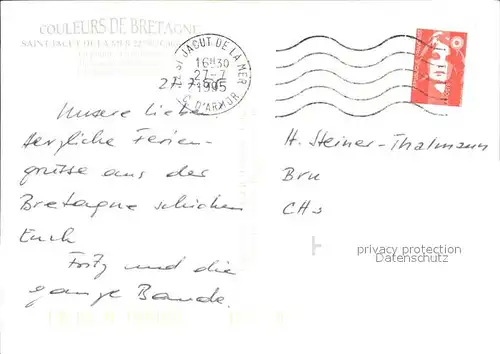 COULEURS DE BRETAGNE
SAINT-JACUT DE LA MER
ST JACUT DE LA MER
16H30
27-7
1995
C. D'ARMOR
27.7.95
Unsere Lieben
Herzliche Ferien-
grüsse aus der
Bretagne schicken
Euch
Fritz und die
ganze Bande.
H. Steiner-Thalmann
Bru
CHs
privacy protection
Datenschutz